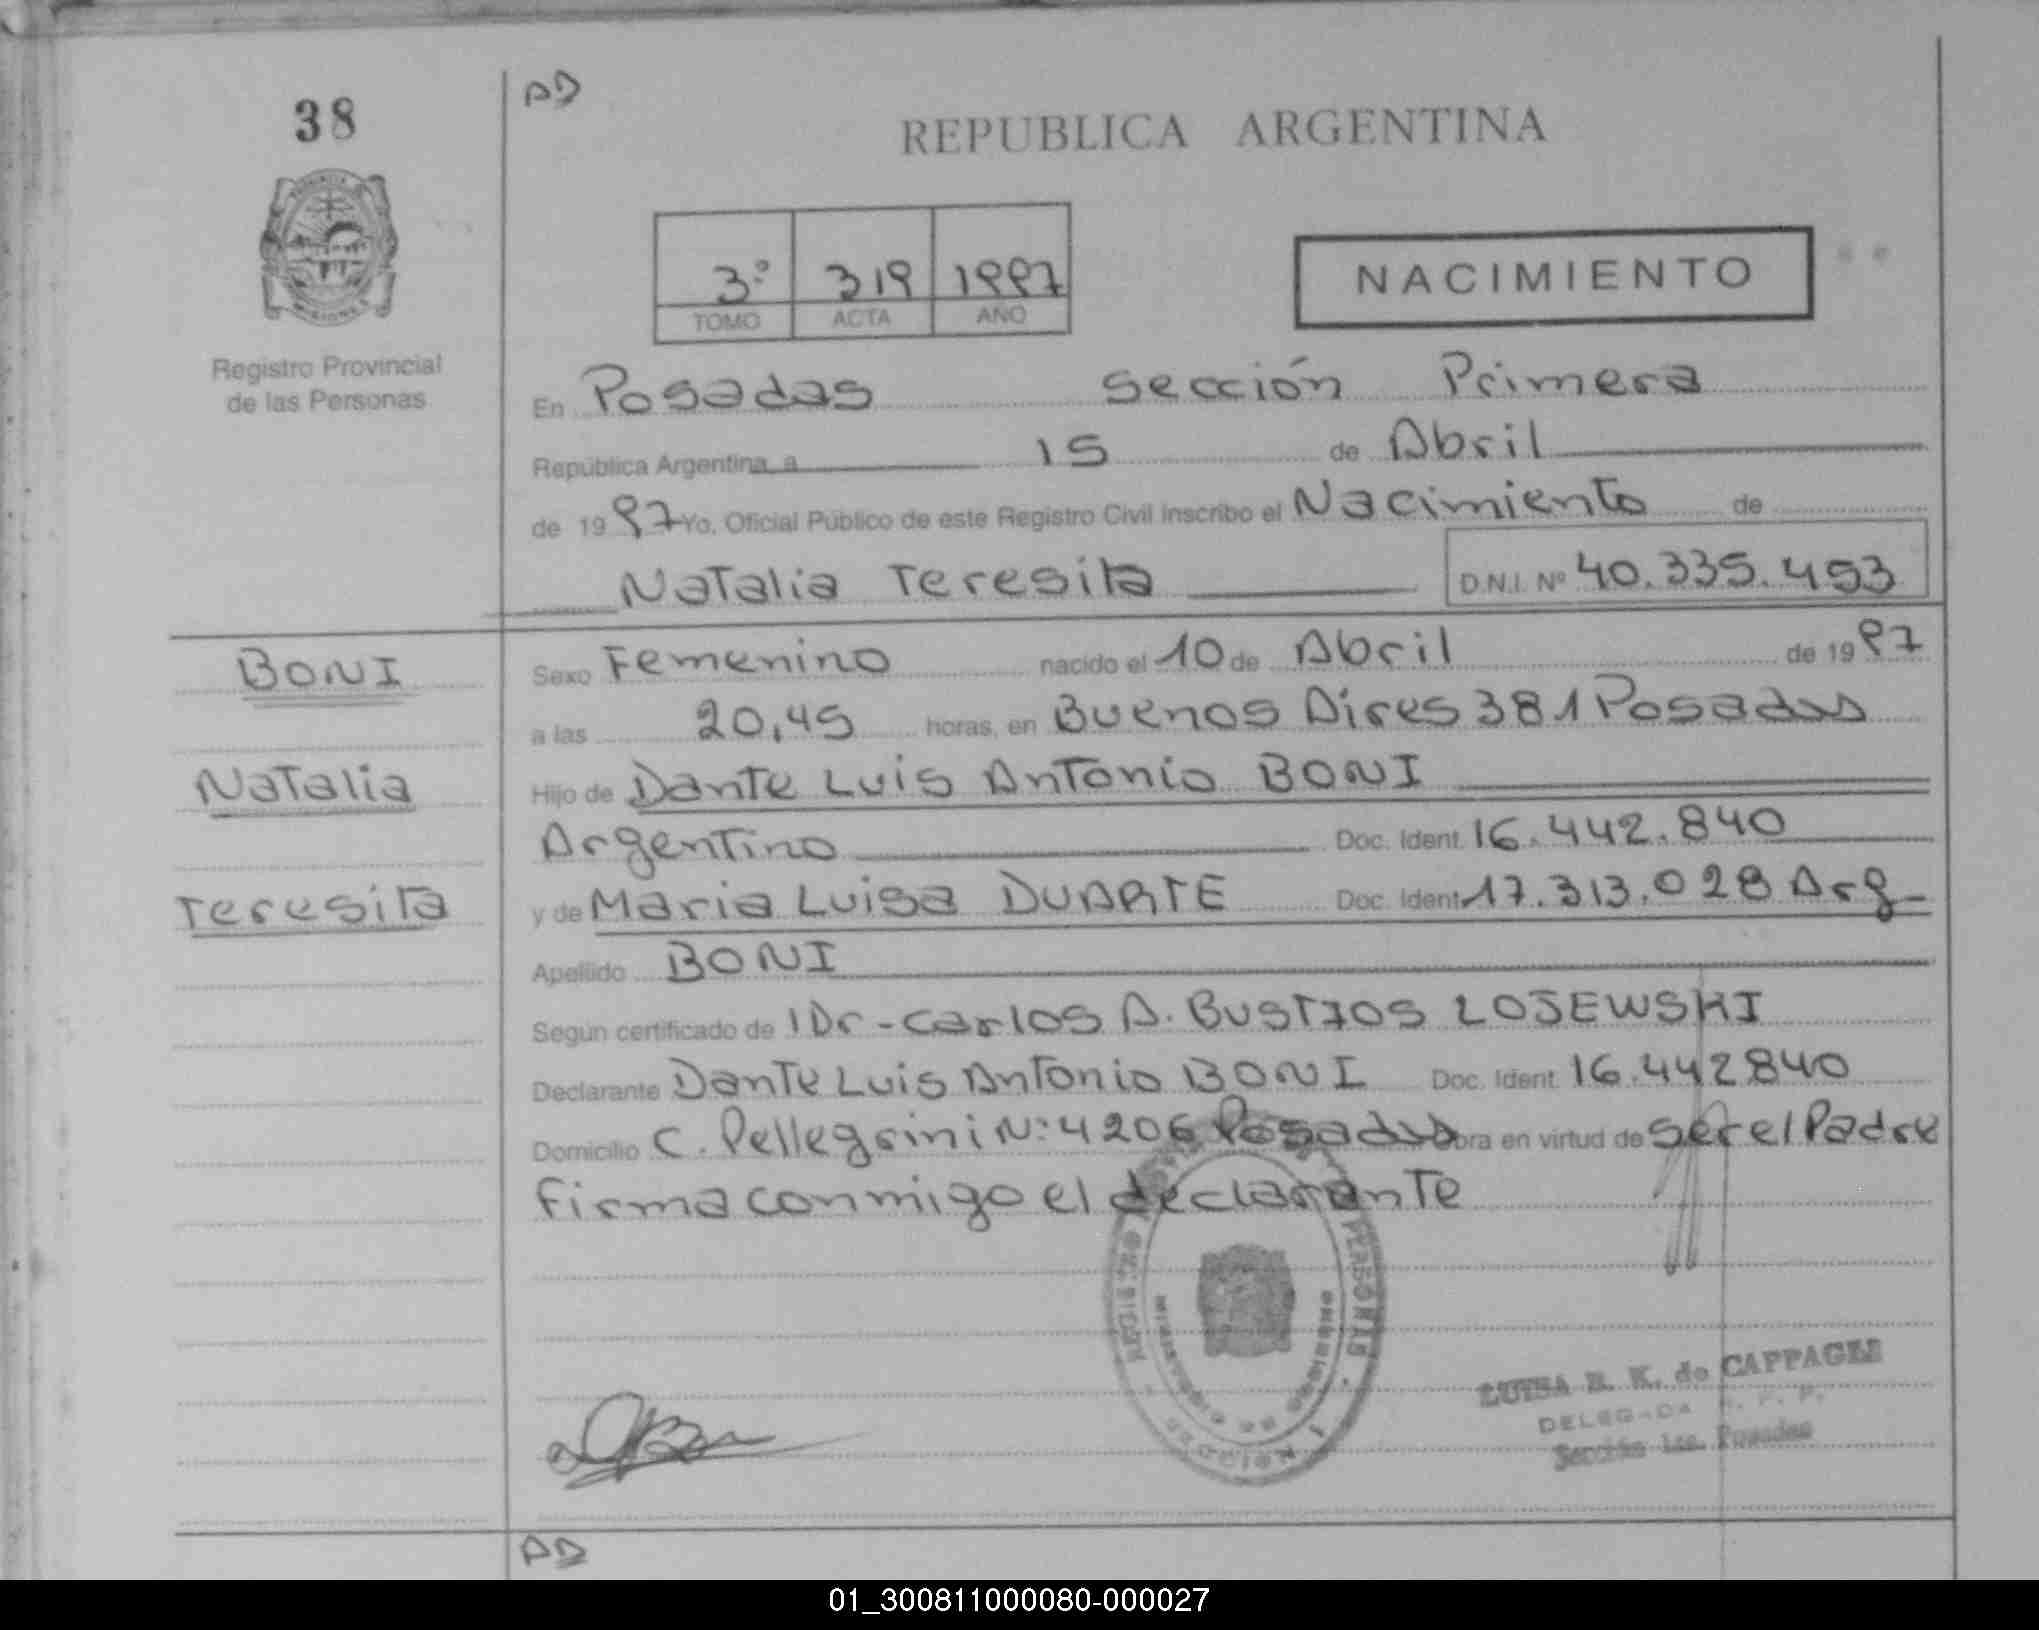 38
AD
REPUBLICA ARGENTINA
3º 319 1997
TOMO ACTA AÑO
NACIMIENTO
Registro Provincial
de las Personas
En Posadas Sección Primera
República Argentina, a 15 de Abril
de 1997 Yo, Oficial Público de este Registro Civil inscribo el Nacimiento de
Natalia Teresita D.N.I. Nº 40.335.453
BONI
Natalia
Teresita
Sexo Femenino nacido el 10 de Abril de 1997
a las 20,45 horas, en Buenos Aires 381 Posadas
Hijo de Dante Luis Antonio BONI
Argentino Doc. Ident. 16.442.840
y de Maria Luisa DUARTE Doc. Ident. 17.313.028 Arg
Apellido BONI
Según certificado de Dr-Carlos A. LOJEWSKI
Declarante Dante Luis Antonio BONI Doc. Ident. 16.442840
Domicilio C. Pellegrini N: 4206 Posadas obra en virtud de ser el Padre
Firma conmigo el declarante
LUISA de CAPPAGLI
DELEGADA R. P. P.
Sección 1ra. Posadas
AD
01_300811000080-000027